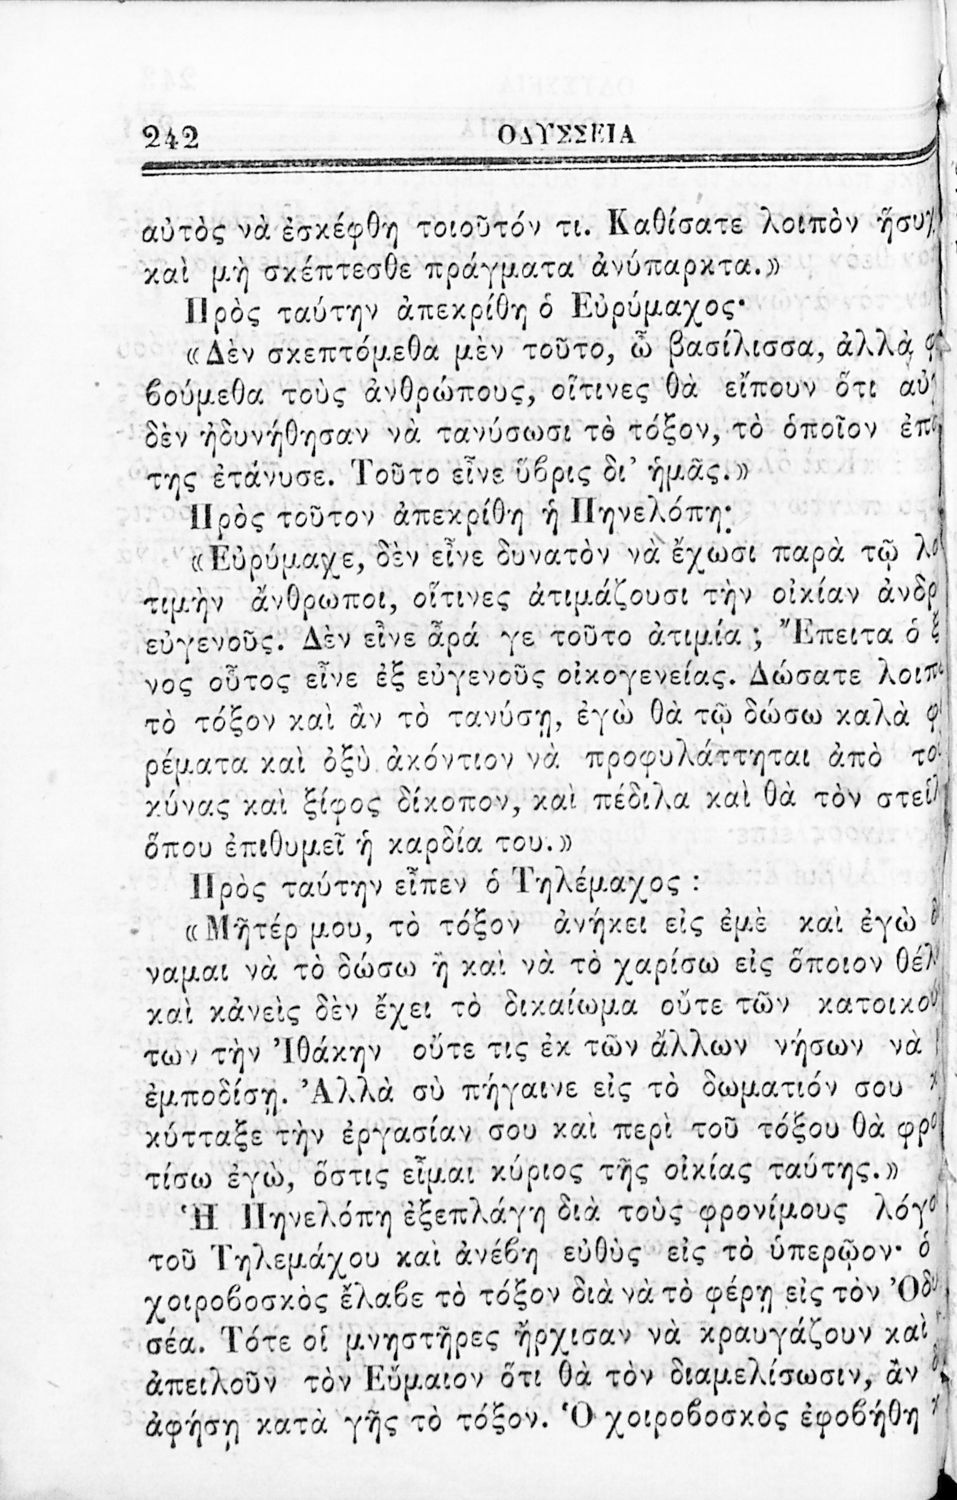 242 ΟΔΥΣΣΕΙΑ
αὐτὸς νὰ ἐσκέφθη τοιοῦτόν τι. Καθίσατε λοιπὸν
καὶ μὴ σκέπτεσθε πράγματα ἀνύπαρκτα.»
Πρὸς ταύτην ἀπεκρίθη ὁ Εὐρύμαχος·
«Δὲν σκεπτόμεθα μὲν τοῦτο, ὦ βασίλισσα, ἀλλὰ
βούμεθα τοὺς ἀνθρώπους, οἵτινες θὰ εἴπουν ὅτι
δὲν ἠδυνήθησαν νὰ τανύσωσι τὸ τόξον, τὸ ὁποῖον
της ἐτάνυσε. Τοῦτο εἶνε ὕβρις δι' ἡμᾶς.»
Πρὸς τοῦτον ἀπεκρίθη ἡ Πηνελόπη·
«Εὐρύμαχε, δὲν εἶνε δυνατὸν νὰ ἔχωσι παρὰ τῷ
τιμὴν ἄνθρωποι, οἵτινες ἀτιμάζουσι τὴν οἰκίαν ἀνδρ
εὐγενοῦς. Δὲν εἶνε ἆρά γε τοῦτο ἀτιμία ; Ἔπειτα ὁ ξ
νος οὗτος εἶνε ἐξ εὐγενοῦς οἰκογενείας. Δώσατε λοιπ
τὸ τόξον καὶ ἂν τὸ τανύσῃ, ἐγὼ θὰ τῷ δώσω καλὰ φ
ρέματα καὶ ὀξὺ ἀκόντιον νὰ προφυλάττηται ἀπὸ το
κύνας καὶ ξίφος δίκοπον, καὶ πέδιλα καὶ θὰ τὸν στεί
ὅπου ἐπιθυμεῖ ἡ καρδία του.»
Πρὸς ταύτην εἶπεν ὁ Τηλέμαχος :
«Μῆτέρ μου, τὸ τόξον ἀνήκει εἰς ἐμὲ καὶ ἐγὼ
ναμαι νὰ τὸ δώσω ἢ καὶ νὰ τὸ χαρίσω εἰς ὅποιον θέλ
καὶ κἀνεὶς δὲν ἔχει τὸ δικαίωμα οὔτε τῶν κατοικο
των τὴν Ἰθάκην οὔτε τις ἐκ τῶν ἄλλων νήσων νὰ
ἐμποδίσῃ. Ἀλλὰ σὺ πήγαινε εἰς τὸ δωματιόν σου
κύτταξε τὴν ἐργασίαν σου καὶ περὶ τοῦ τόξου θὰ φρο
τίσω ἐγὼ, ὅστις εἶμαι κύριος τῆς οἰκίας ταύτης.»
Ἡ Πηνελόπη ἐξεπλάγη διὰ τοὺς φρονίμους λόγο
τοῦ Τηλεμάχου καὶ ἀνέβη εὐθὺς εἰς τὸ ὑπερῷον· ὁ
χοιροβοσκὸς ἔλαβε τὸ τόξον διὰ νὰ τὸ φέρῃ εἰς τὸν Ὀδυ
σέα. Τότε οἱ μνηστῆρες ἤρχισαν νὰ κραυγάζουν καὶ
ἀπειλοῦν τὸν Εὔμαιον ὅτι θὰ τὸν διαμελίσωσιν, ἂν
ἀφήσῃ κατὰ γῆς τὸ τόξον. Ὁ χοιροβοσκὸς ἐφοβήθη